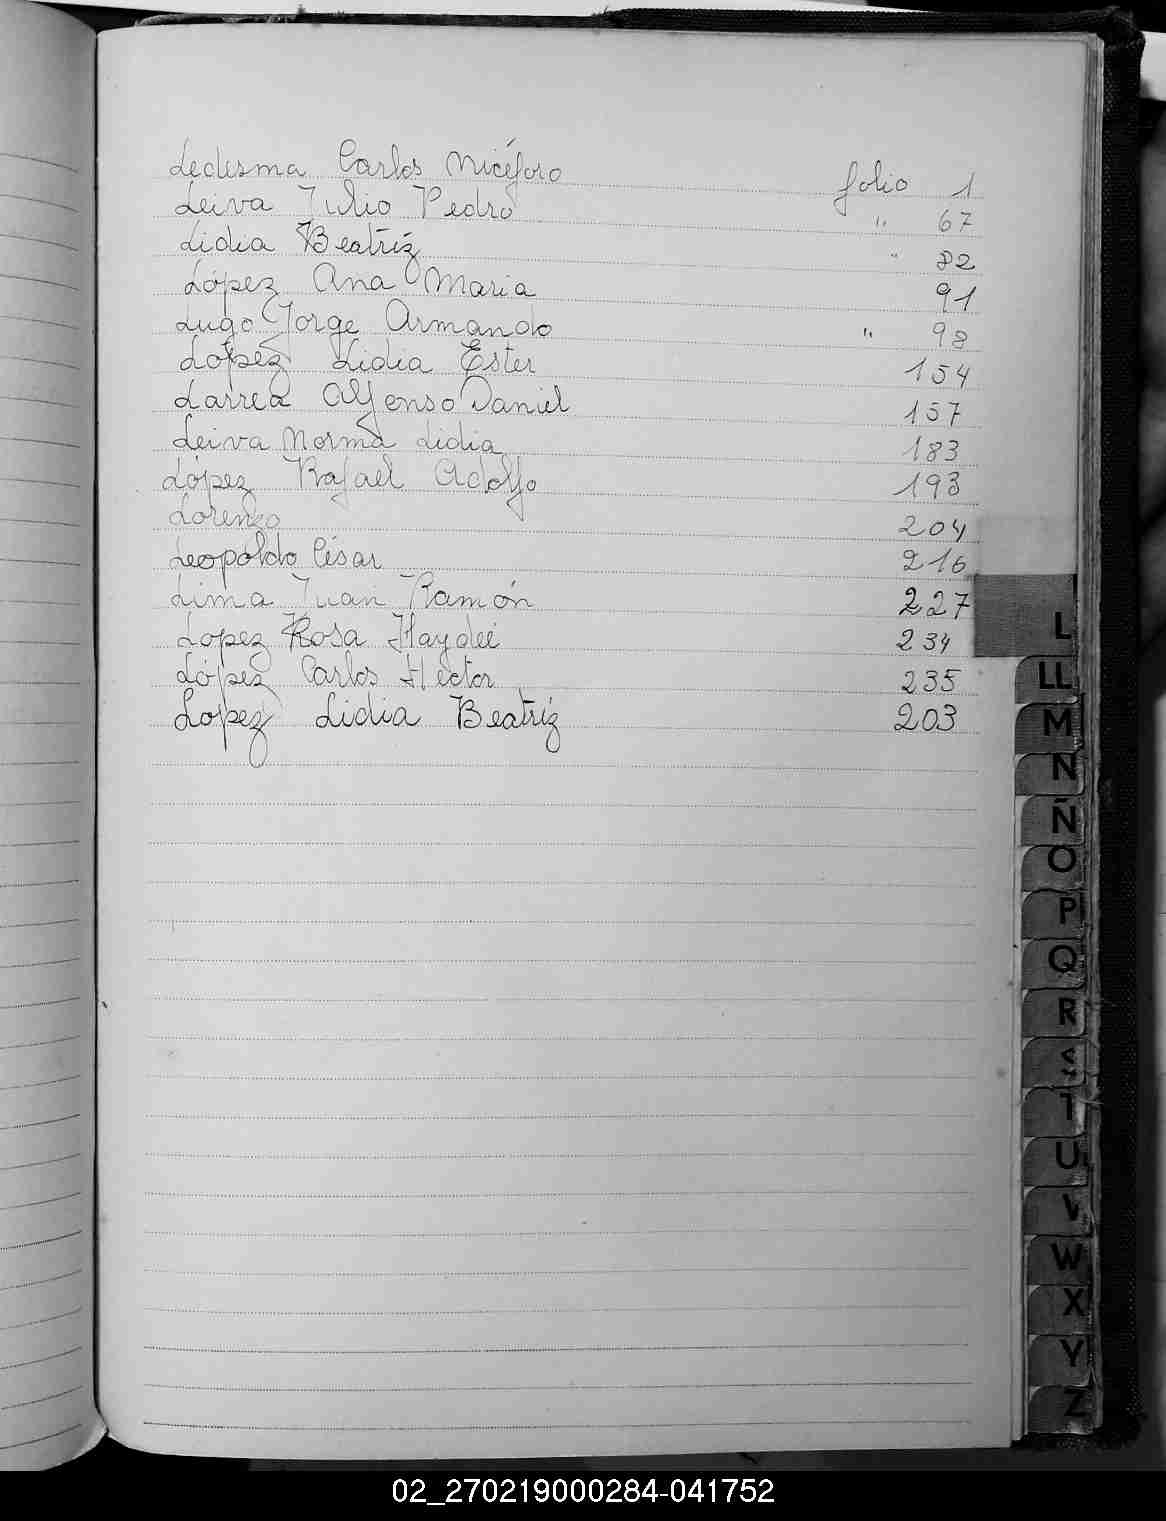 Ledesma Carlos Nicéforo folio 1
Leiva Julio Pedro " 67
Lidia Beatríz " 82
López Ana Maria 91
Lugo Jorge Armando " 98
López Lidia Ester 154
Larrea Alfonso Daniel 157
Leiva Norma Lidia 183
López Rafael Adolfo 193
Lorenzo 204
Leopoldo César 216
Lima Juan Ramón 227
Lopez Rosa Haydeé 234
López Carlos Héctor 235
Lopez Lidia Beatríz 203
L
LL
M
N
Ñ
O
P
Q
R
S
T
U
V
W
X
Y
Z
02_270219000284-041752